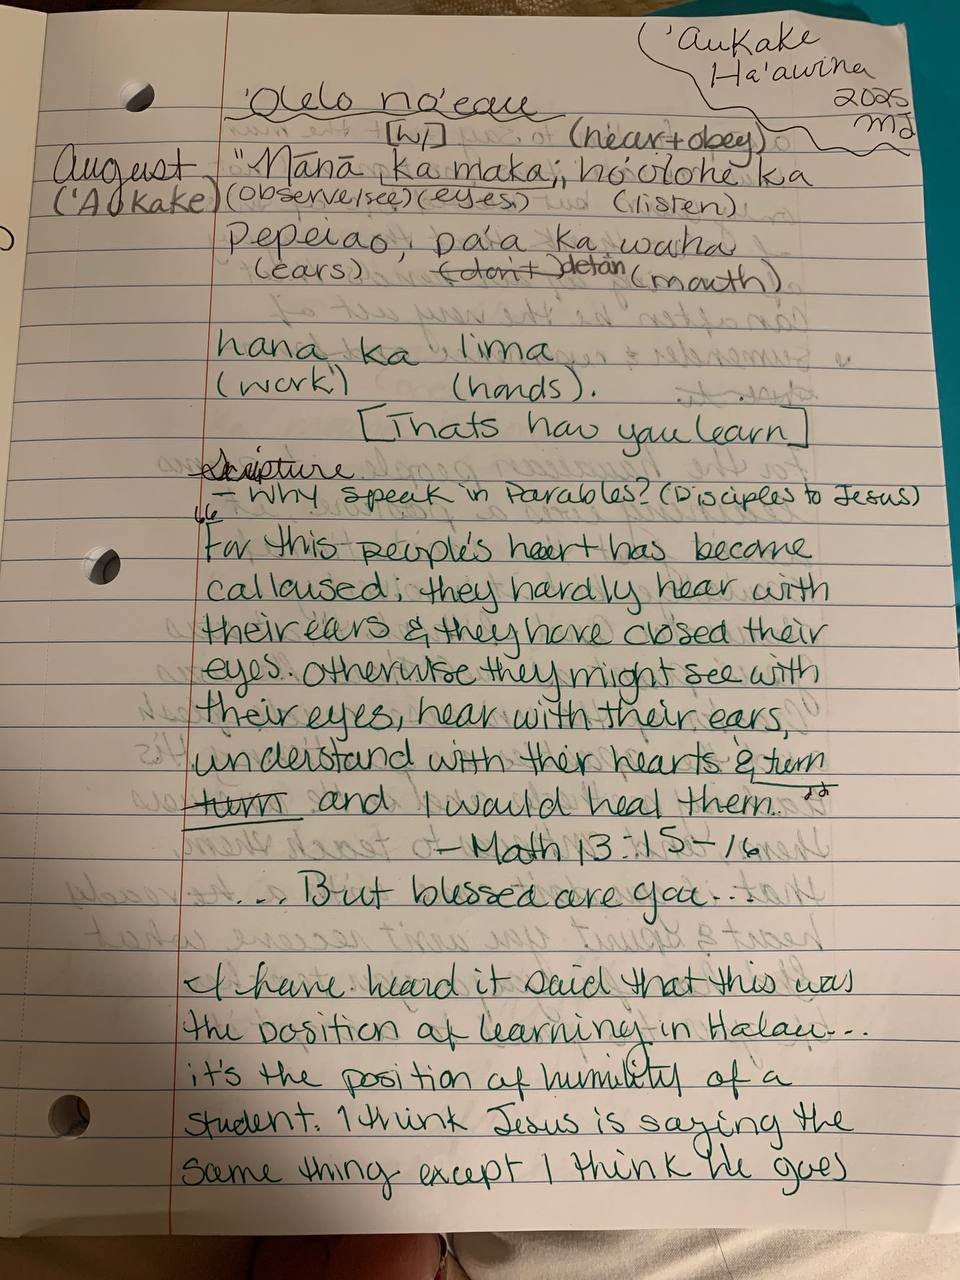 'Aukake
Ha'awina
2025
MJ
'Olelo no'eau
[w/] (hear + obey)
August "Nānā ka maka; ho'olohe ka
('Aukake) (observe/see) (eyes) (listen)
pepeiao, pa'a ka waha
(ears) (don't) detain (mouth)
hana ka lima
(work) (hands).
[Thats how you learn]
Scripture
- Why speak in Parables? (Disciples to Jesus)
"For this people's heart has become
calloused; they hardly hear with
their ears & they have closed their
eyes. Otherwise they might see with
their eyes, hear with their ears,
understand with their hearts & turn
turn and I would heal them."
- Math 13:15-16
... But blessed are you...
I have heard it said that this was
the position of learning in Halau...
it's the position of humility of a
student. I think Jesus is saying the
same thing except I think He goes